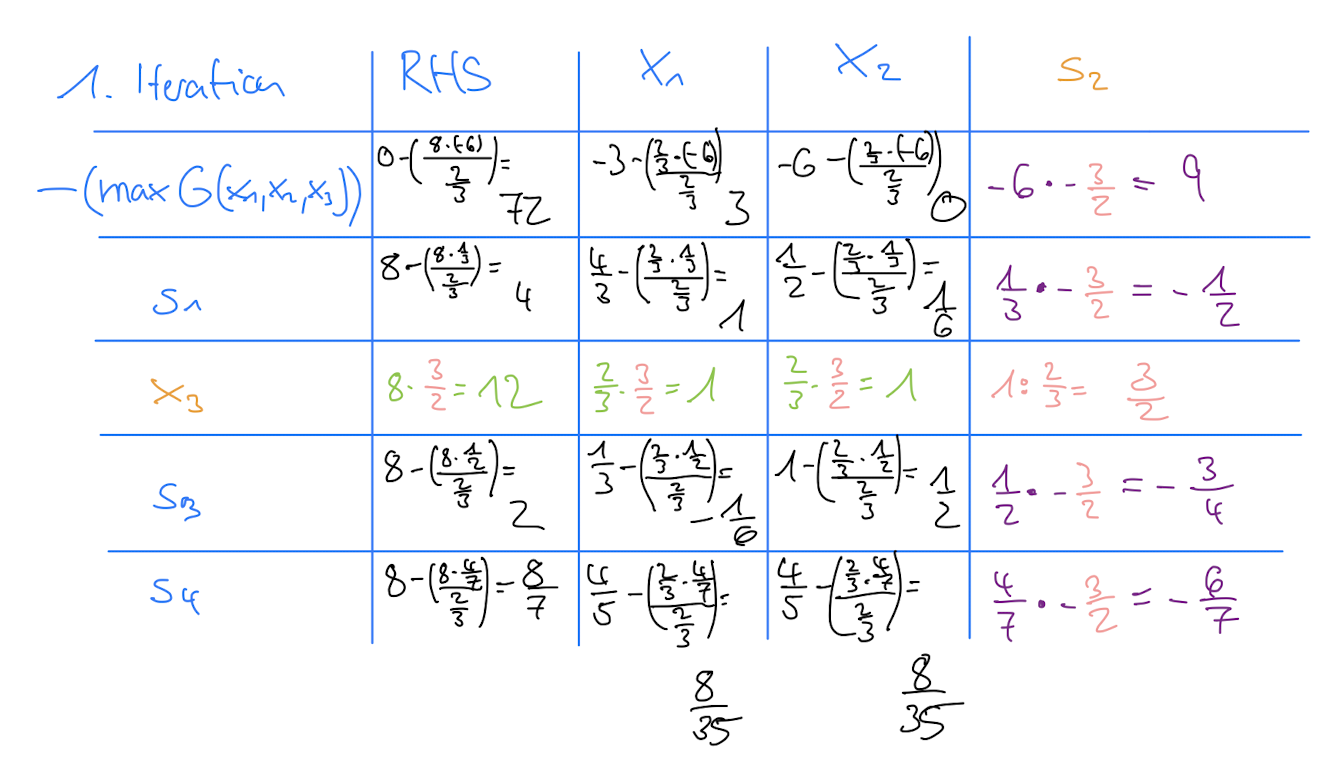 1. Iteration RHS X₁ X₂ S₂
-(max G(x₁,x₂,x₃)) 0-((8·(-6))/(2/3))= 72 -3-((2/3·(-6))/(2/3)) 3 -6-((2/3·(-6))/(2/3)) 0 -6·-3/2 = 9
S₁ 8-((8·1/3)/(2/3))= 4 4/3-((2/3·1/3)/(2/3))= 1 1/2-((2/3·1/3)/(2/3))= 1/6 1/3·-3/2 = -1/2
X₃ 8·3/2=12 2/3·3/2=1 2/3·3/2=1 1:2/3= 3/2
S₃ 8-((8·1/2)/(2/3))= 2 1/3-((2/3·1/2)/(2/3))= -1/6 1-((2/3·1/2)/(2/3))= 1/2 1/2·-3/2 = -3/4
S₄ 8-((8·4/7)/(2/3))=8/7 4/5-((2/3·4/7)/(2/3))= 4/5-((2/3·4/7)/(2/3))= 4/7·-3/2 = -6/7
8/35 8/35